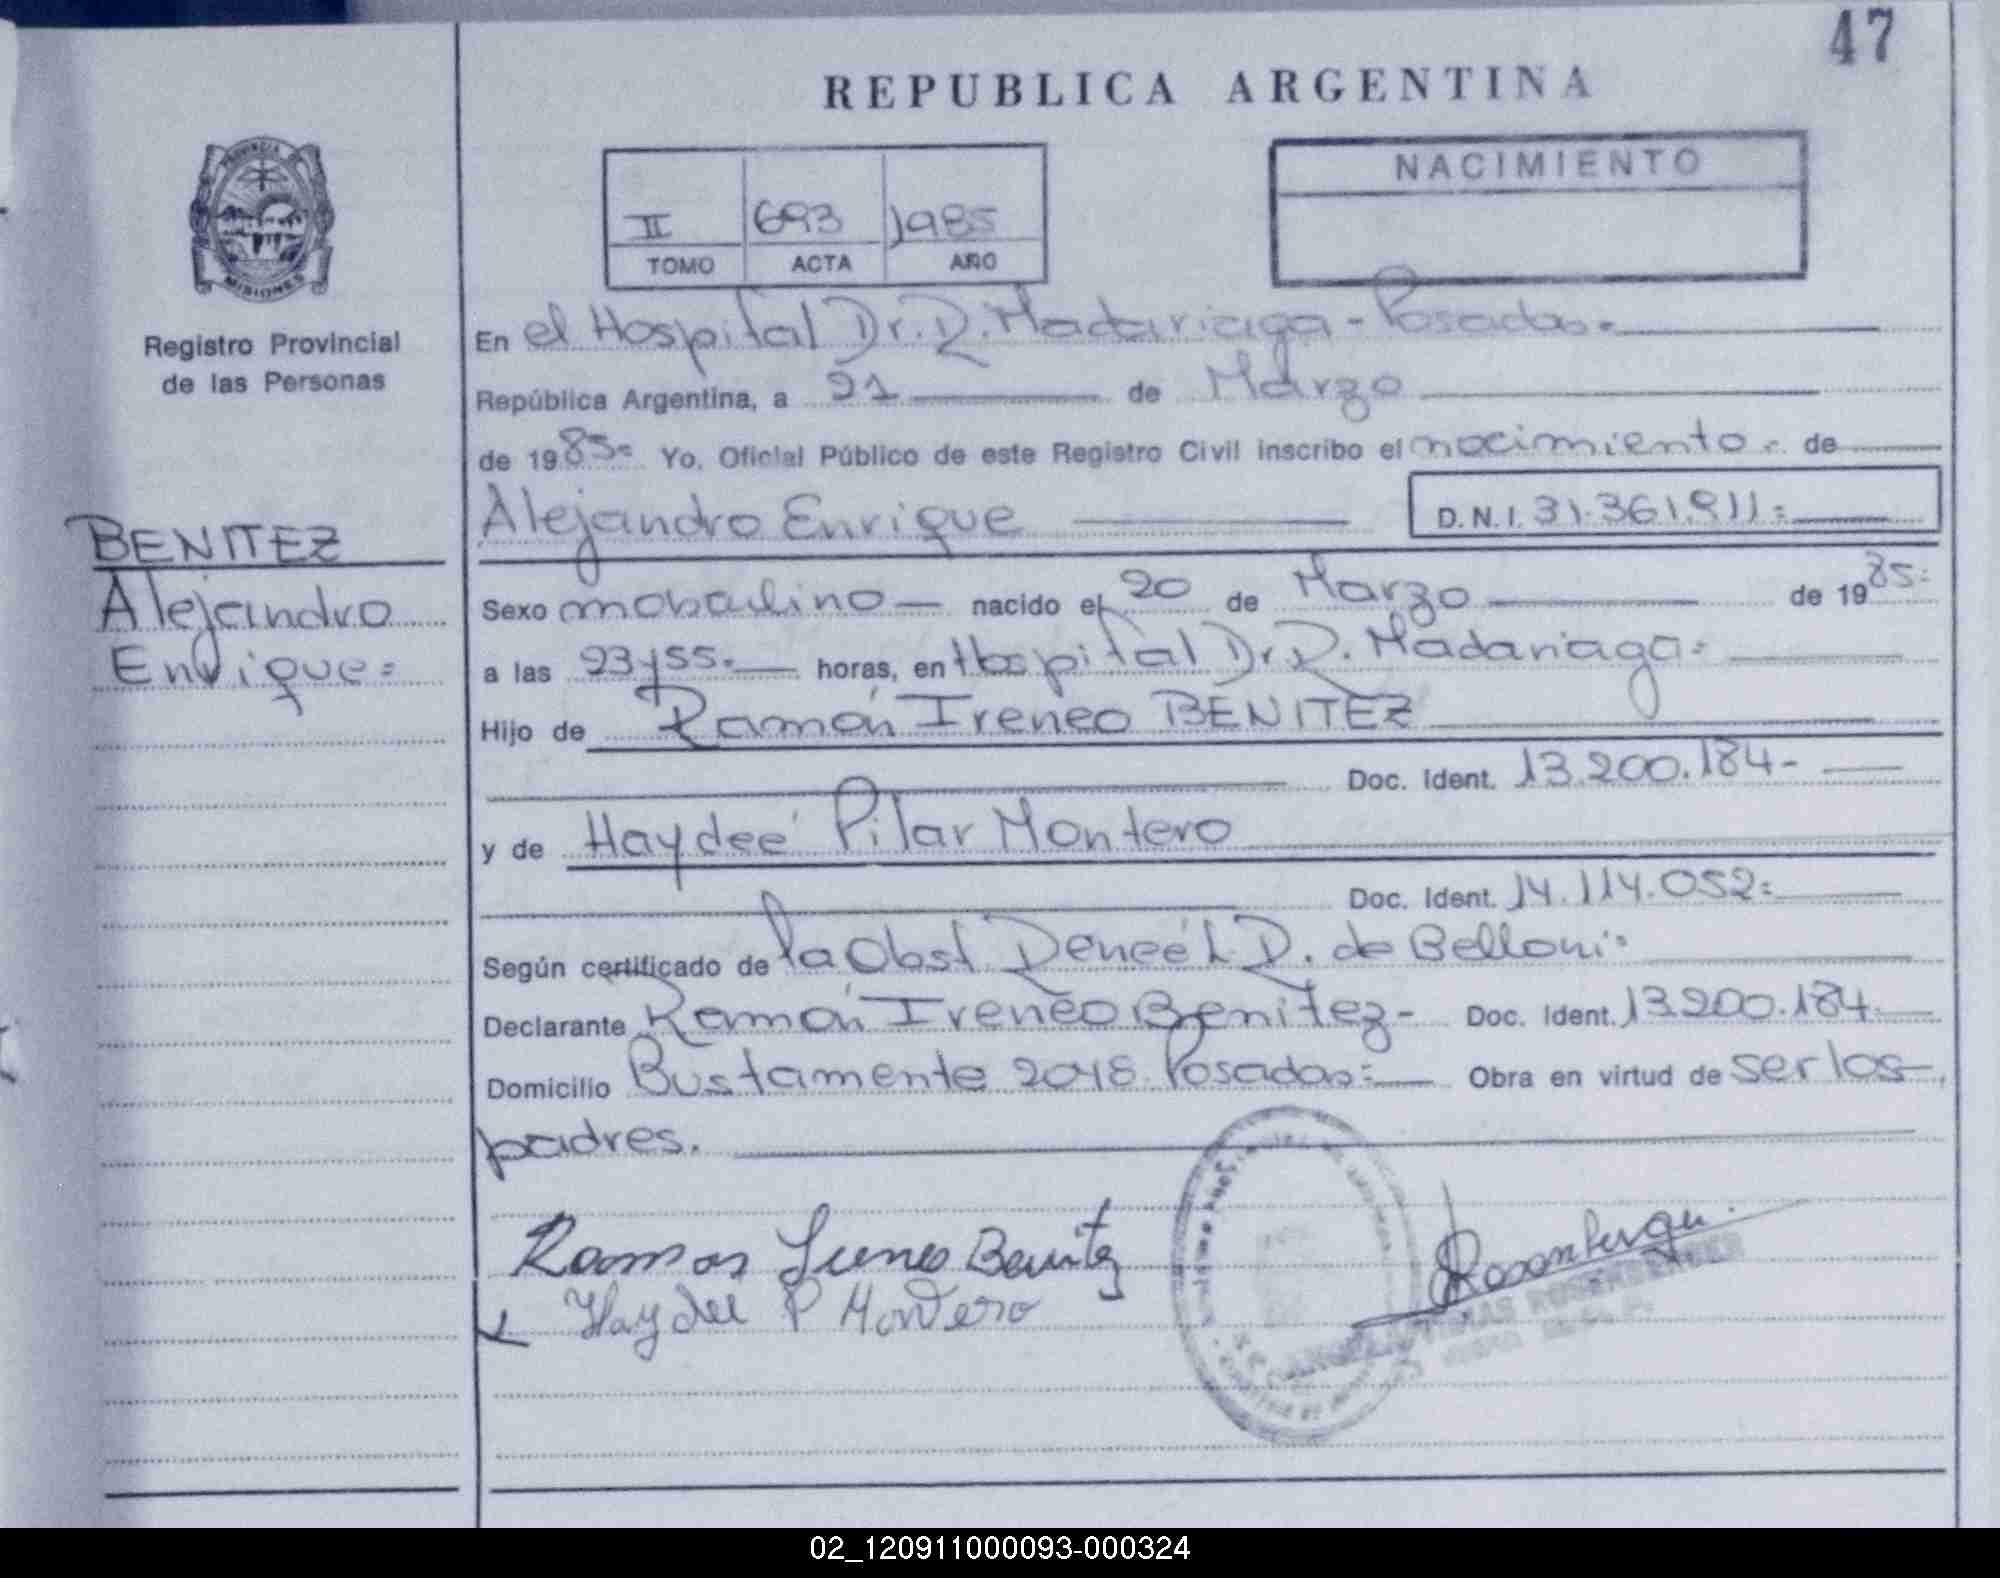 47
REPUBLICA ARGENTINA
NACIMIENTO
II 693 1985
TOMO ACTA AÑO
PROVINCIA DE
MISIONES
Registro Provincial
de las Personas
En el Hospital Dr. R. Madariaga - Posadas.
República Argentina, a 21 de Marzo
de 1985= Yo, Oficial Público de este Registro Civil inscribo el nacimiento = de
Alejandro Enrique D.N.I. 31.361.911=
BENITEZ
Alejandro
Enrique=
Sexo masculino nacido el 20 de Marzo de 1985=
a las 23y55.- horas, en Hospital Dr. R. Madariaga=
Hijo de Ramón Ireneo BENITEZ
Doc. Ident. 13.200.184-
y de Haydeé Pilar Montero
Doc. Ident. 14.114.052=
Según certificado de la Obst. Reneé L. D. de Belloni=
Declarante Ramón Ireneo Benitez- Doc. Ident. 13.200.184
Domicilio Bustamente 2048 Posadas=- Obra en virtud de ser los
padres.
Ramon Ireneo Benitez
Haydee P Montero
Rosenberger
ROSENBERGER
02_120911000093-000324